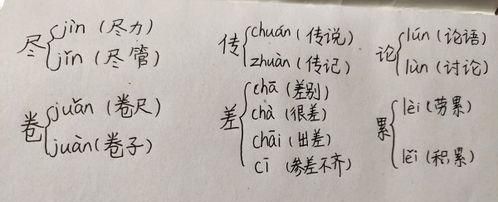 尽 jìn（尽力）
jǐn（尽管）
传 chuán（传说）
zhuàn（传记）
论 lún（论语）
lùn（讨论）
卷 juǎn（卷尺）
juàn（卷子）
差 chā（差别）
chà（很差）
chāi（出差）
cī（参差不齐）
累 lèi（劳累）
lěi（积累）